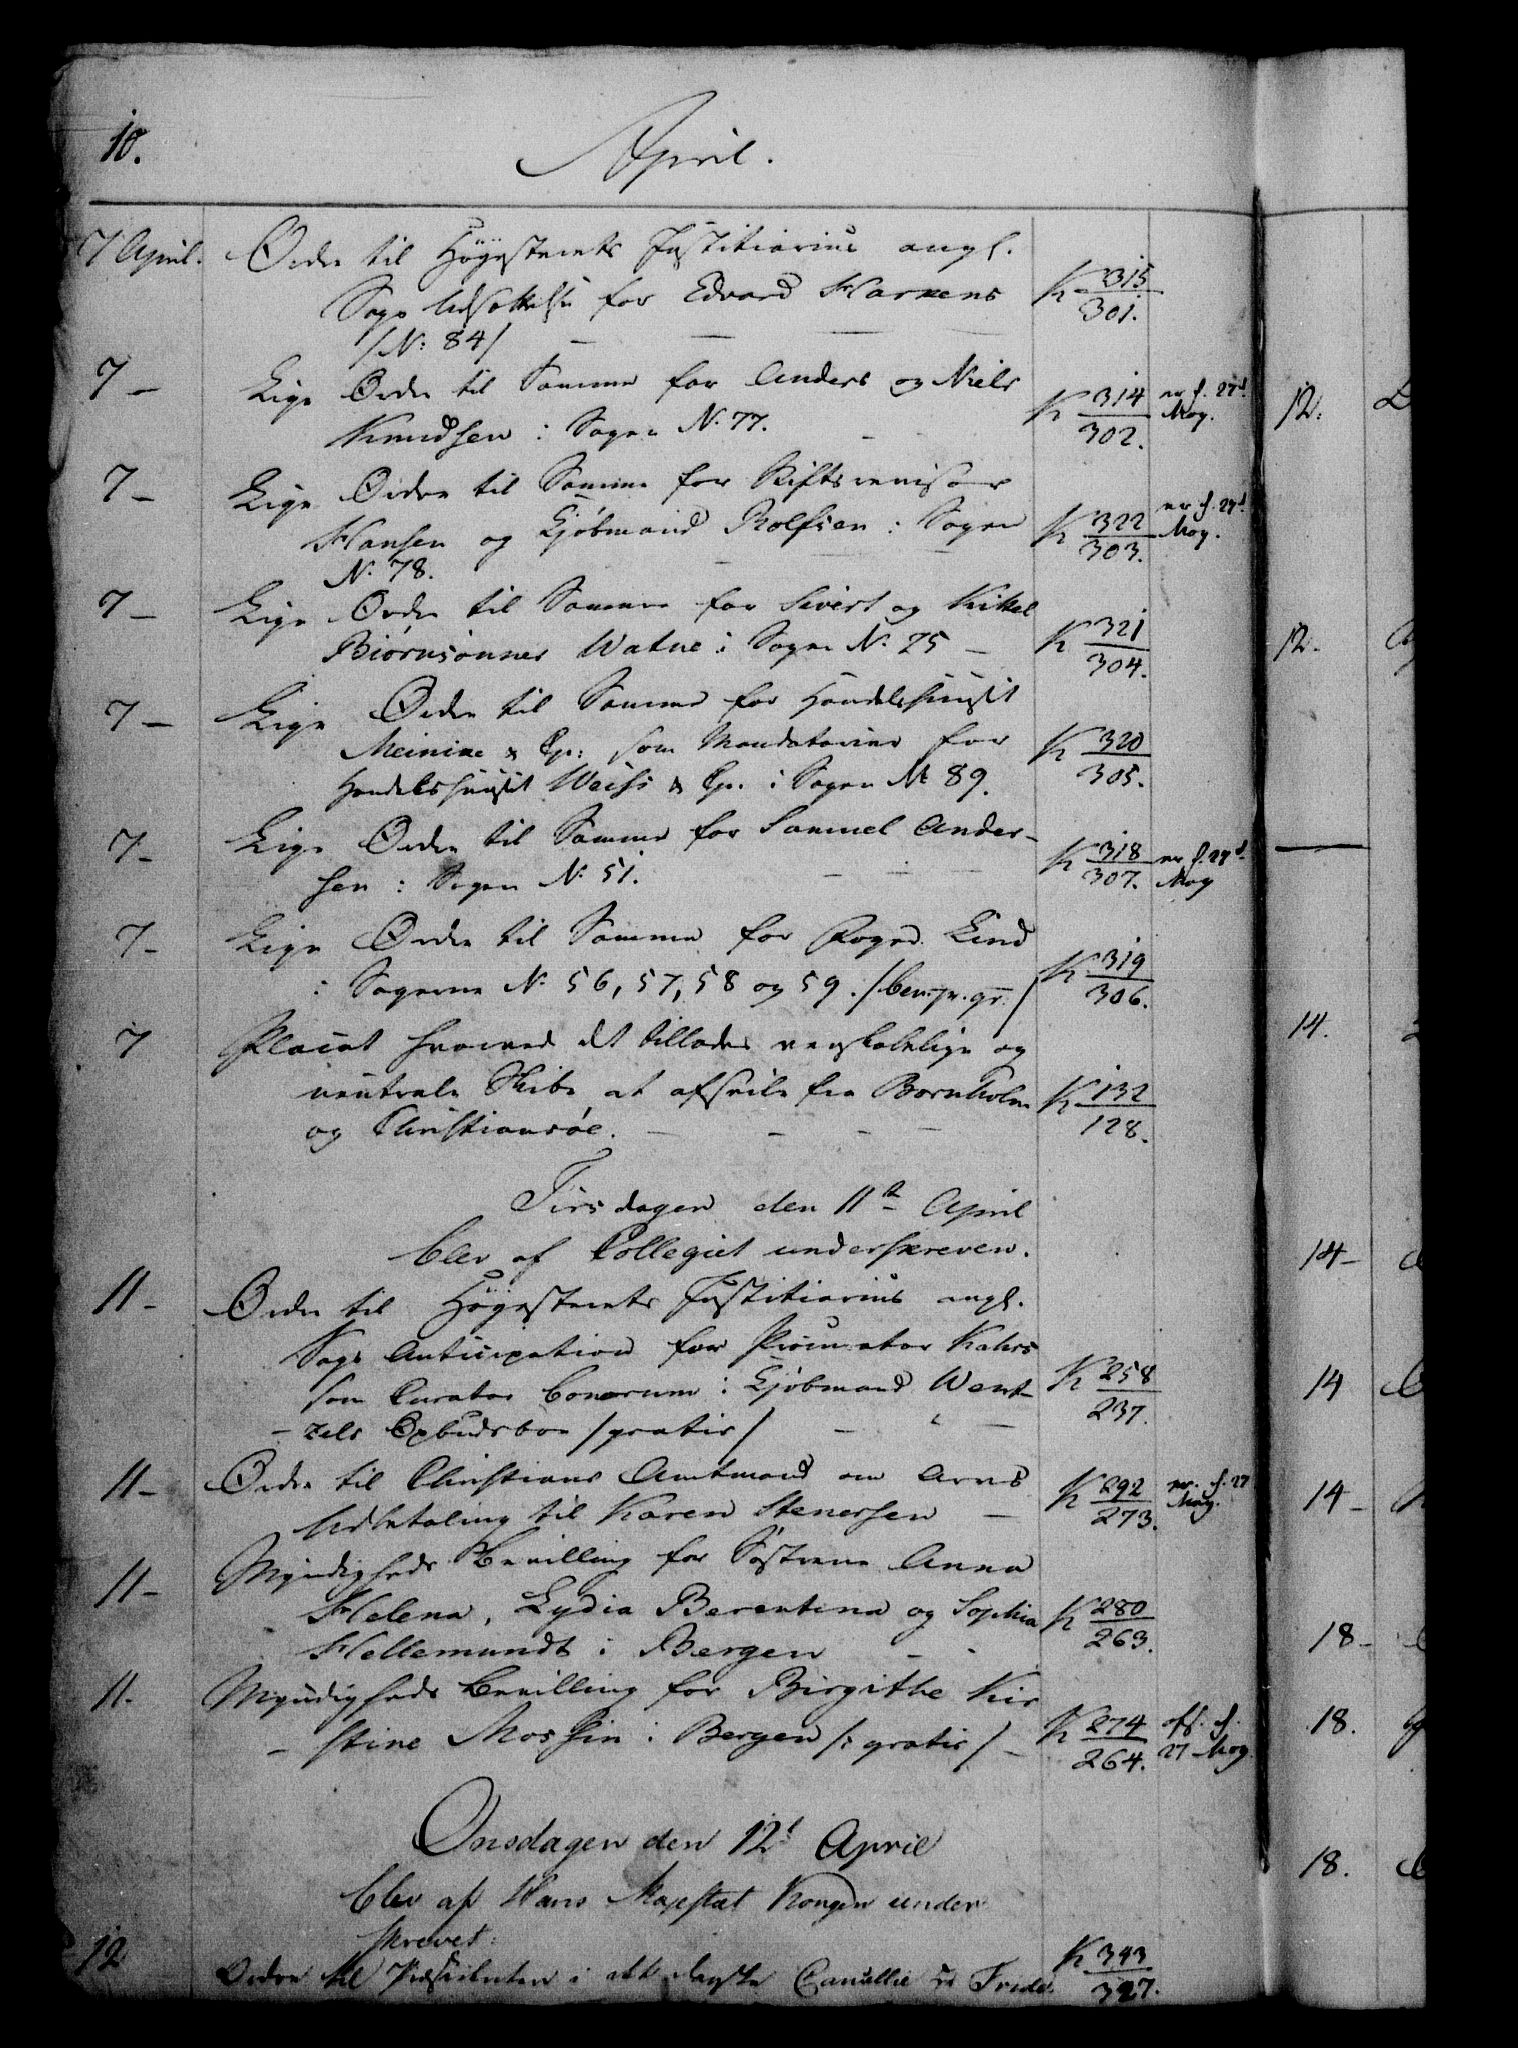 10.
April.
7 April. Ordre til Høyesterets Justitiarius angl.
Sags Udsættelse for Edvard Harkens K 315/301.
/N: 84/
7 – Lige Ordre til Samme for Anders og Niels K 314/302. er f. 27d.
Knudsen i Sagen N. 77. May.
7 – Lige Ordre til Samme for Stiftsrevisor
Hansen og Kjøbmand Rolfsen i Sagen K 322/303. er f. 27d. May.
N. 78.
7 – Lige Ordre til Samme for Sivert og Kittel
Biørnsønner Watne i Sagen N. 75 – K 321/304.
7 – Lige Ordre til Samme for Handelshuuset
Meinike & Cp: som Mandatarier for K 320/305.
Handelshuuset Weiss & Cp. i Sagen No 89.
7 – Lige Ordre til Samme for Samuel Ander-
sen i Sagen N. 51. K 318/307. er f. 27d. May
7 – Lige Ordre til Samme for Foged Lind
i Sagerne N. 56, 57, 58 og 59. /ben. p. gr./ K 319/306.
7 Placat hvorved det tillades venskabelige og
neutrale Skibe at afseile fra Bornholm K 132/128.
og Christiansøe.
Tirsdagen den 11te April
blev af Collegiet underskreven.
11 – Ordre til Høyesterets Justitiarius angl.
Sags Anticipation for Procurator Kahrs
som Curator bonorum i Kjøbmand Went- K 258/237.
– zels Opbudsboe /gratis/
11 – Ordre til Christians Amtmand om Arvs K 292/273. er. f. 27 May.
Udbetaling til Karen Stenersen –
11 – Myndigheds Bevilling for Søstrene Anna
Helena, Lydia Berentina og Sophia K 280/263.
Hellemundt i Bergen
11. Myndigheds Bevilling for Birgithe Kir
– stine Mossin i Bergen /: gratis/ – K 274/264. afs. f. 27 May
Onsdagen den 12t April
blev af Hans Majestæt Kongen under
skrevet:
12 Ordre til Præsidenten i det danske Cancellie Frider K 343/327.
12.
12.
14.
14 –
14
14 –
18 –
18.
18.